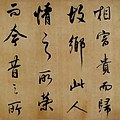 相富貴而歸
故鄉此人
情之所榮
而今昔之所